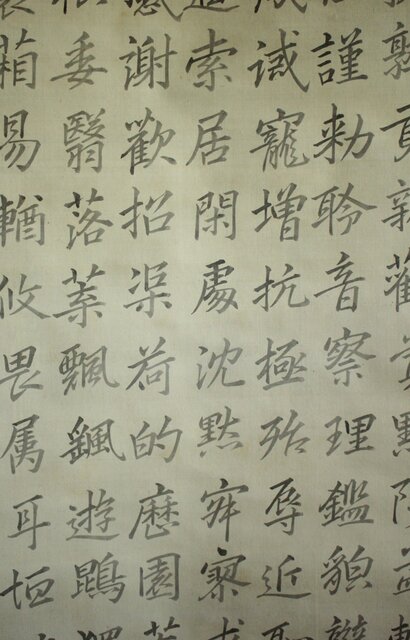 熟貢新勸賞黜陟孟
謹勑聆音察理鑑貌
誡寵增抗極殆辱近
索居閑處沈黙寂寥
謝歡招渠荷的歷園
委翳落葉飄颻遊鵾
箱易輶攸畏属耳垣